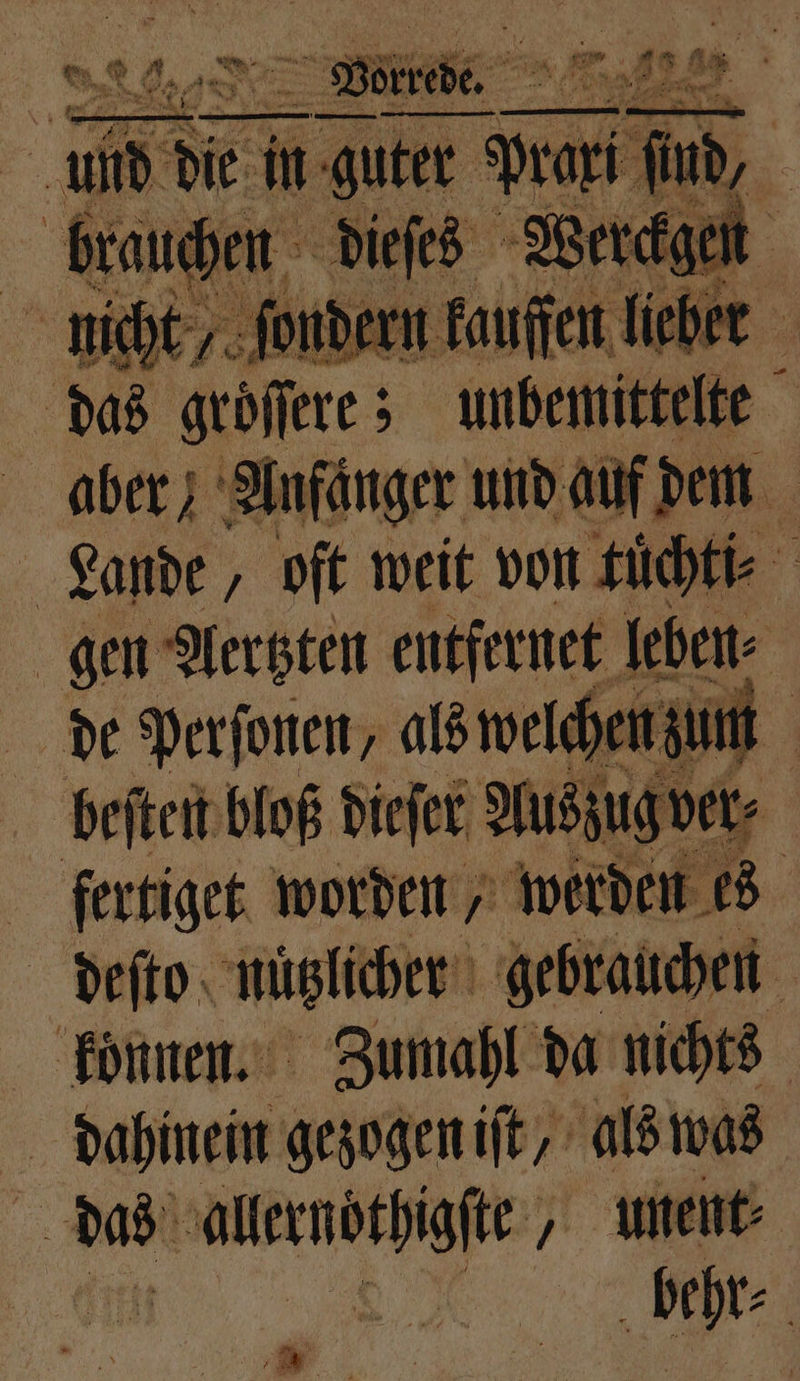 Vorrede.
und die in guter Praxi ſind,
brauchen dieſes Werckgen
nicht, ſondern kauffen lieber
das groͤſſere; unbemittelte
aber, Anfaͤnger und auf dem
Lande, oft weit von tuͤchti⸗
gen Aertzten entfernet leben⸗
de Perſonen, als welchen zum
beſten bloß dieſer Auszug ver⸗
fertiget worden, werden es
deſto nuͤtzlicher gebrauchen
koͤnnen. Zumahl da nichts
dahinein gezogen iſt, als was
das allernoͤthigſte, unent⸗
behr⸗